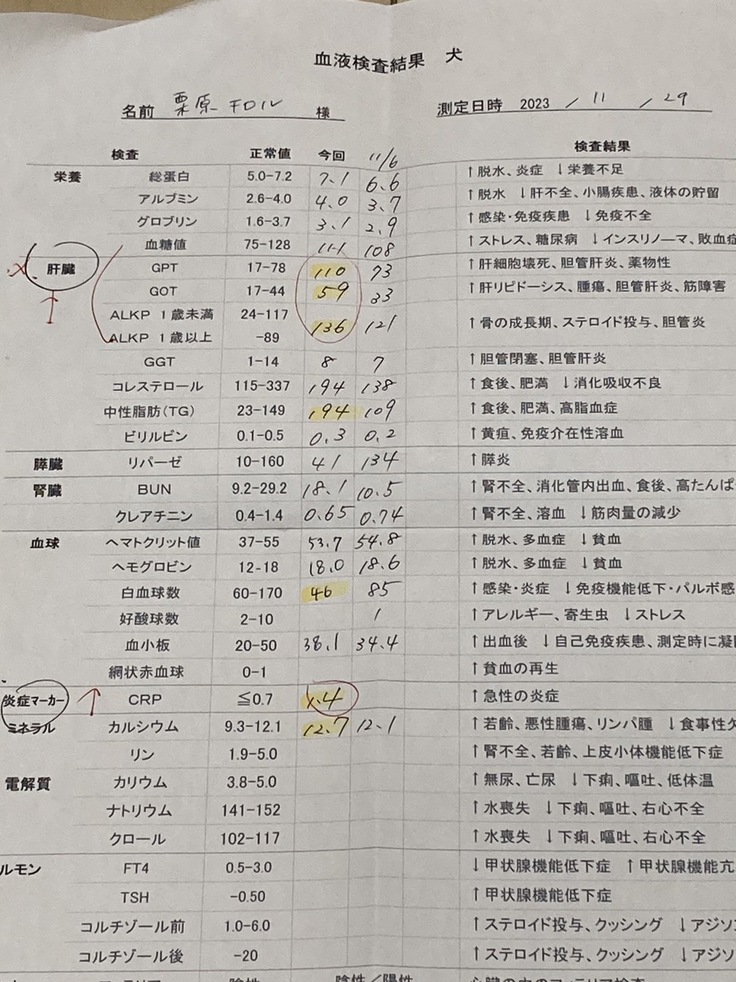 血液検査結果 犬
名前 栗原 様 測定日時 2023 / 11 / 29
検査 正常値 今回 11/6 検査結果
栄養 総蛋白 5.0-7.2 7.1 6.6 ↑脱水、炎症 ↓栄養不足
アルブミン 2.6-4.0 4.0 3.7 ↑脱水 ↓肝不全、小腸疾患、液体の貯留
グロブリン 1.6-3.7 3.1 2.9 ↑感染・免疫疾患 ↓免疫不全
血糖値 75-128 111 108 ↑ストレス、糖尿病 ↓インスリノーマ、敗血症
肝臓 GPT 17-78 110 73 ↑肝細胞壊死、胆管肝炎、薬物性
↑ GOT 17-44 59 33 ↑肝リピドーシス、腫瘍、胆管肝炎、筋障害
ALKP 1歳未満 24-117 136 121 ↑骨の成長期、ステロイド投与、胆管炎
ALKP 1歳以上 -89
GGT 1-14 8 7 ↑胆管閉塞、胆管肝炎
コレステロール 115-337 194 138 ↑食後、肥満 ↓消化吸収不良
中性脂肪(TG) 23-149 194 109 ↑食後、肥満、高脂血症
ビリルビン 0.1-0.5 0.3 0.2 ↑黄疸、免疫介在性溶血
膵臓 リパーゼ 10-160 41 134 ↑膵炎
腎臓 BUN 9.2-29.2 18.1 10.5 ↑腎不全、消化管内出血、食後、高たんぱ
クレアチニン 0.4-1.4 0.65 0.74 ↑腎不全、溶血 ↓筋肉量の減少
血球 ヘマトクリット値 37-55 53.7 54.8 ↑脱水、多血症 ↓貧血
ヘモグロビン 12-18 18.0 18.6 ↑脱水、多血症 ↓貧血
白血球数 60-170 46 85 ↑感染・炎症 ↓免疫機能低下・パルボ感
好酸球数 2-10 1 ↑アレルギー、寄生虫 ↓ストレス
血小板 20-50 38.1 34.4 ↑出血後 ↓自己免疫疾患、測定時に凝
網状赤血球 0-1 ↑貧血の再生
炎症マーカー ↑ CRP ≦0.7 1.4 ↑急性の炎症
ミネラル カルシウム 9.3-12.1 12.7 12.1 ↑若齢、悪性腫瘍、リンパ腫 ↓食事性
リン 1.9-5.0 ↑腎不全、若齢、上皮小体機能低下症
電解質 カリウム 3.8-5.0 ↑無尿、亡尿 ↓下痢、嘔吐、低体温
ナトリウム 141-152 ↑水喪失 ↓下痢、嘔吐、右心不全
クロール 102-117 ↑水喪失 ↓下痢、嘔吐、右心不全
ルモン FT4 0.5-3.0 ↓甲状腺機能低下症 ↑甲状腺機能亢
TSH -0.50 ↑甲状腺機能低下症
コルチゾール前 1.0-6.0 ↑ステロイド投与、クッシング ↓アジソ
コルチゾール後 -20 ↑ステロイド投与、クッシング ↓アジソ
陰性 陰性/陽性